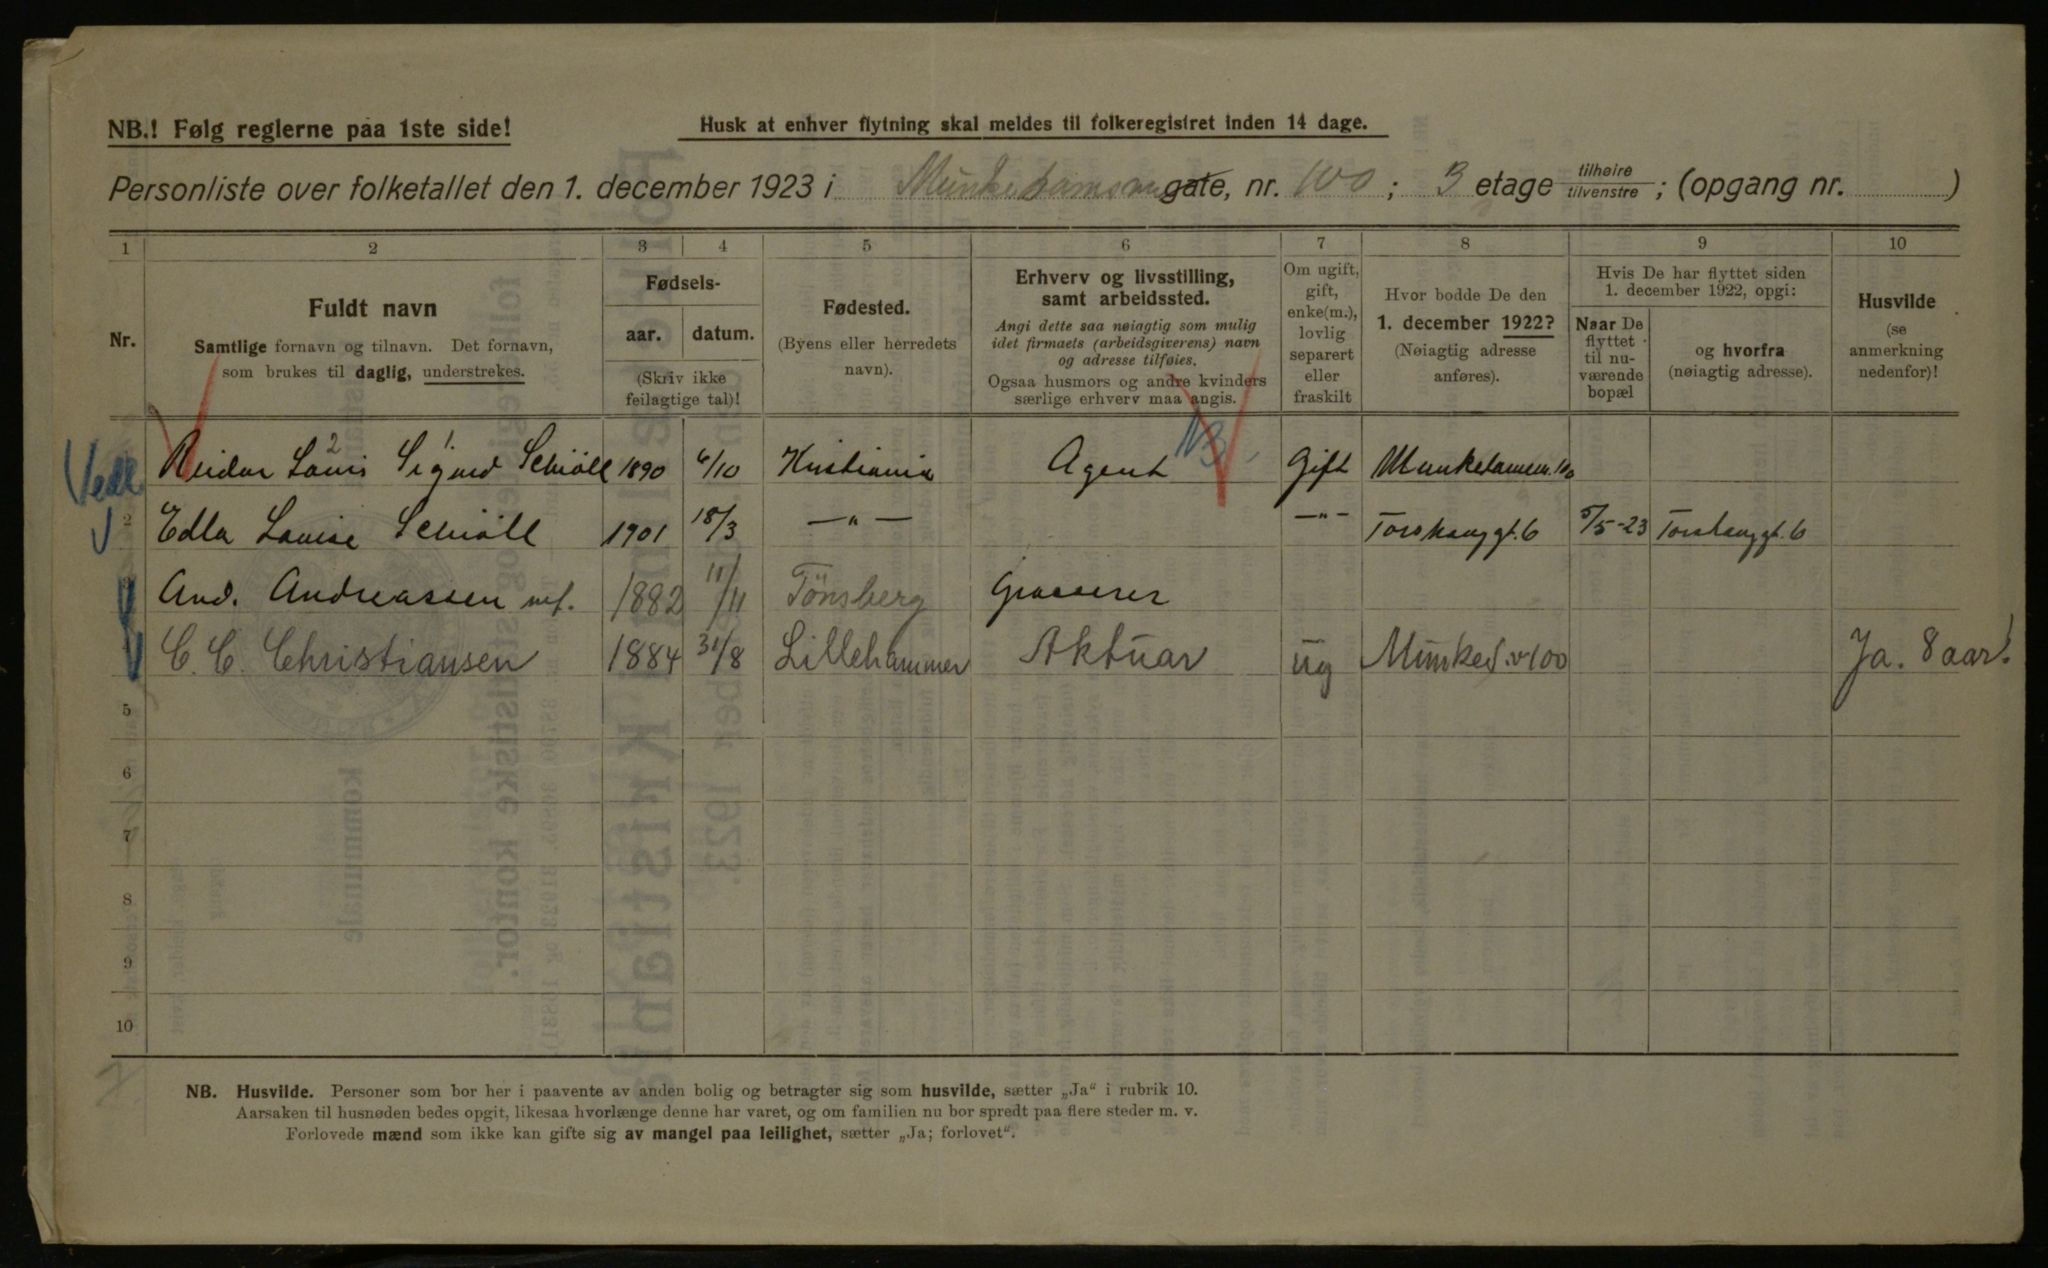 NB.! Følg reglerne paa 1ste side!
Husk at enhver flytning skal meldes til folkeregistret inden 14 dage.
Personliste over folketallet den 1. december 1923 i Munkedamsvei gate, nr. 100; 3 etage tilhøire tilvenstre; (opgang nr. )
1 2 3 4 5 6 7 8 9 10
Nr.
Fuldt navn
Samtlige fornavn og tilnavn. Det fornavn,
som brukes til daglig, understrekes.
Fødsels-
aar. datum.
(Skriv ikke
feilagtige tal)!
Fødested.
(Byens eller herredets
navn).
Erhverv og livsstilling,
samt arbeidssted.
Angi dette saa nøiagtig som mulig
idet firmaets (arbeidsgiverens) navn
og adresse tilføies.
Ogsaa husmors og andre kvinders
særlige erhverv maa angis.
Om ugift,
gift,
enke(m.),
lovlig
separert
eller
fraskilt
Hvor bodde De den
1. december 1922?
(Nøiagtig adresse
anføres).
Hvis De har flyttet siden
1. december 1922, opgi:
Naar De
flyttet
til nu-
værende
bopæl
og hvorfra
(nøiagtig adresse).
Husvilde
(se
anmerkning
nedenfor)!
NB
Reidar Louis 2 Sigurd 1 Schiöll 1890 6/10 Kristiania Agent Gift Munkedamsv. 100
2 Edla Louise Schiöll 1901 18/3 —"— —"— Torskauggt. 6 5/5-23 Torskauggt. 6
And. Andreassen 1882 11/11 Tönsberg Grosserer
C. C. Christiansen 1884 31/8 Lillehammer Aktuar ug Munked.v 100 Ja. 8 aar!
5
6
7
8
9
10
NB. Husvilde. Personer som bor her i paavente av anden bolig og betragter sig som husvilde, sætter „Ja“ i rubrik 10.
Aarsaken til husnøden bedes opgit, likesaa hvorlænge denne har varet, og om familien nu bor spredt paa flere steder m. v.
Forlovede mænd som ikke kan gifte sig av mangel paa leilighet, sætter „Ja; forlovet“.